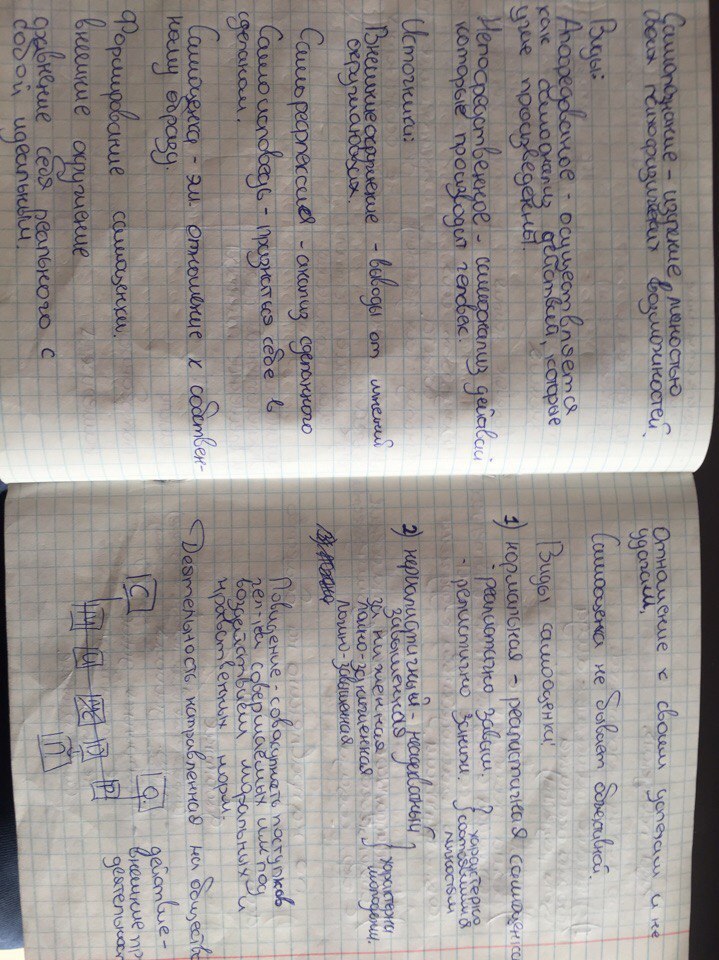 Самопознание - изучение личностью
своих психофизических возможностей.
Виды:
Апосредованое - осуществляется
как самоанализ действий, которые
уже произведены.
Непосредственное - самоанализ действий
которые производит человек.
Источники:
Внешнее окружение - выводы от мнений
окружающих.
Саморефлексия - анализ сделанного
Самоисповедь - признаться себе в
сделаном.
Самооценка - эм. отношение к собствен-
ному образу.
Формирование самооценки.
внешнее окружение
сравнение себя реального с
собой идеальным.
Отношение к своим успехам и не
удачам.
Самооценка не бывает
Виды самооценки:
1) нормальная - реалистичная самооценка
- реалистично завыш.
- реалистично заниж.
характерно
личностям
2) нереалистичный - неадекватный
завышенная
заниженная
полно-заниженная
полно-завышенная
характерн
Поведение - совокупность поступков
совершаемых им под
воздействием моральных и
нравственных норм.
Деятельность направленная на общество
С
Ц
П
Р
О
действие -
внешние пр
деятельност